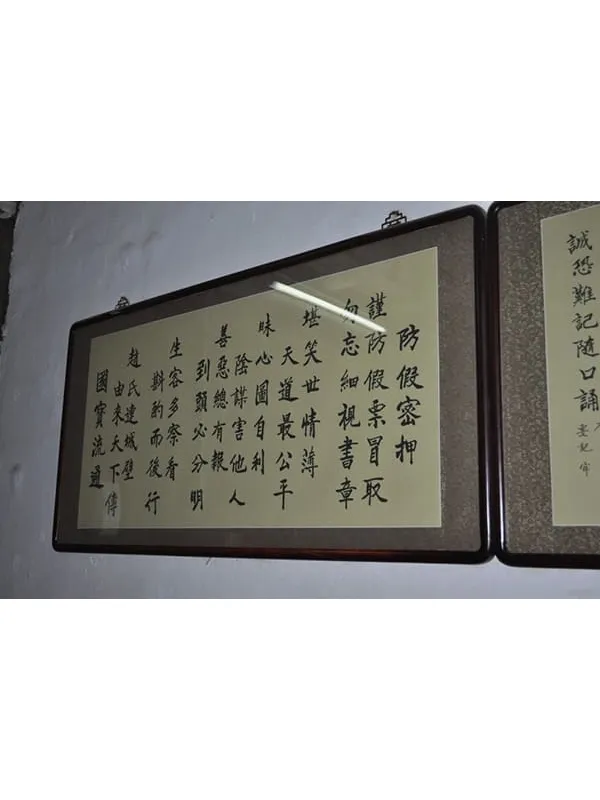 誠恐難記隨口誦
防假密押
謹防假票冒取
勿忘細視書章
堪笑世情薄
天道最公平
昧心圖自利
陰謀害他人
善惡總有報
到頭必分明
生客多察看
斟酌而後行
趙氏連城璧
由來天下傳
國寶流通